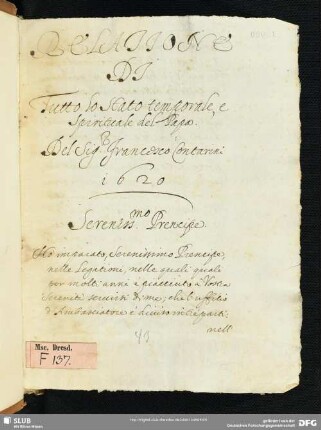 RELATIONE
DI
Tutto lo Stato temporale, e
spirituale del Papa
Del Sigr Francesco Contarini
1620
Sereniss.mo Prencipe
Ho imparato, Serenissimo Prencipe,
nelle Legationi, nelle quali
per molti anni è piacciuto à Vostra
Serenità servirsi di me; che l'uffitio
d'Ambasciatore è diviso in tre parti
nell
Msc. Dresd.
F 137.
SLUB
Wir führen Wissen.
gefördert von der
Deutschen Forschungsgemeinschaft
DFG